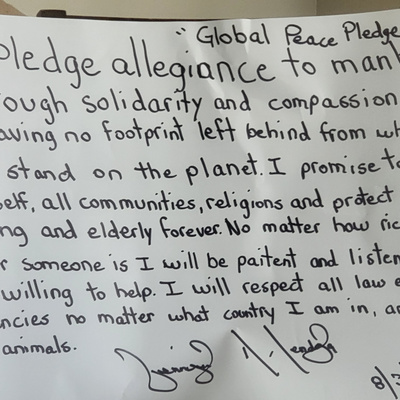 "Global Peace Pledge
Pledge allegiance to man
ough solidarity and compassion
aving no footprint left behind from wh
stand on the planet. I promise to
self, all communities, religions and protect
ng and elderly forever. No matter how ric
r someone is I will be paitent and listen
willing to help. I will respect all law e
ncies no matter what country I am in, an
animals.
8/3